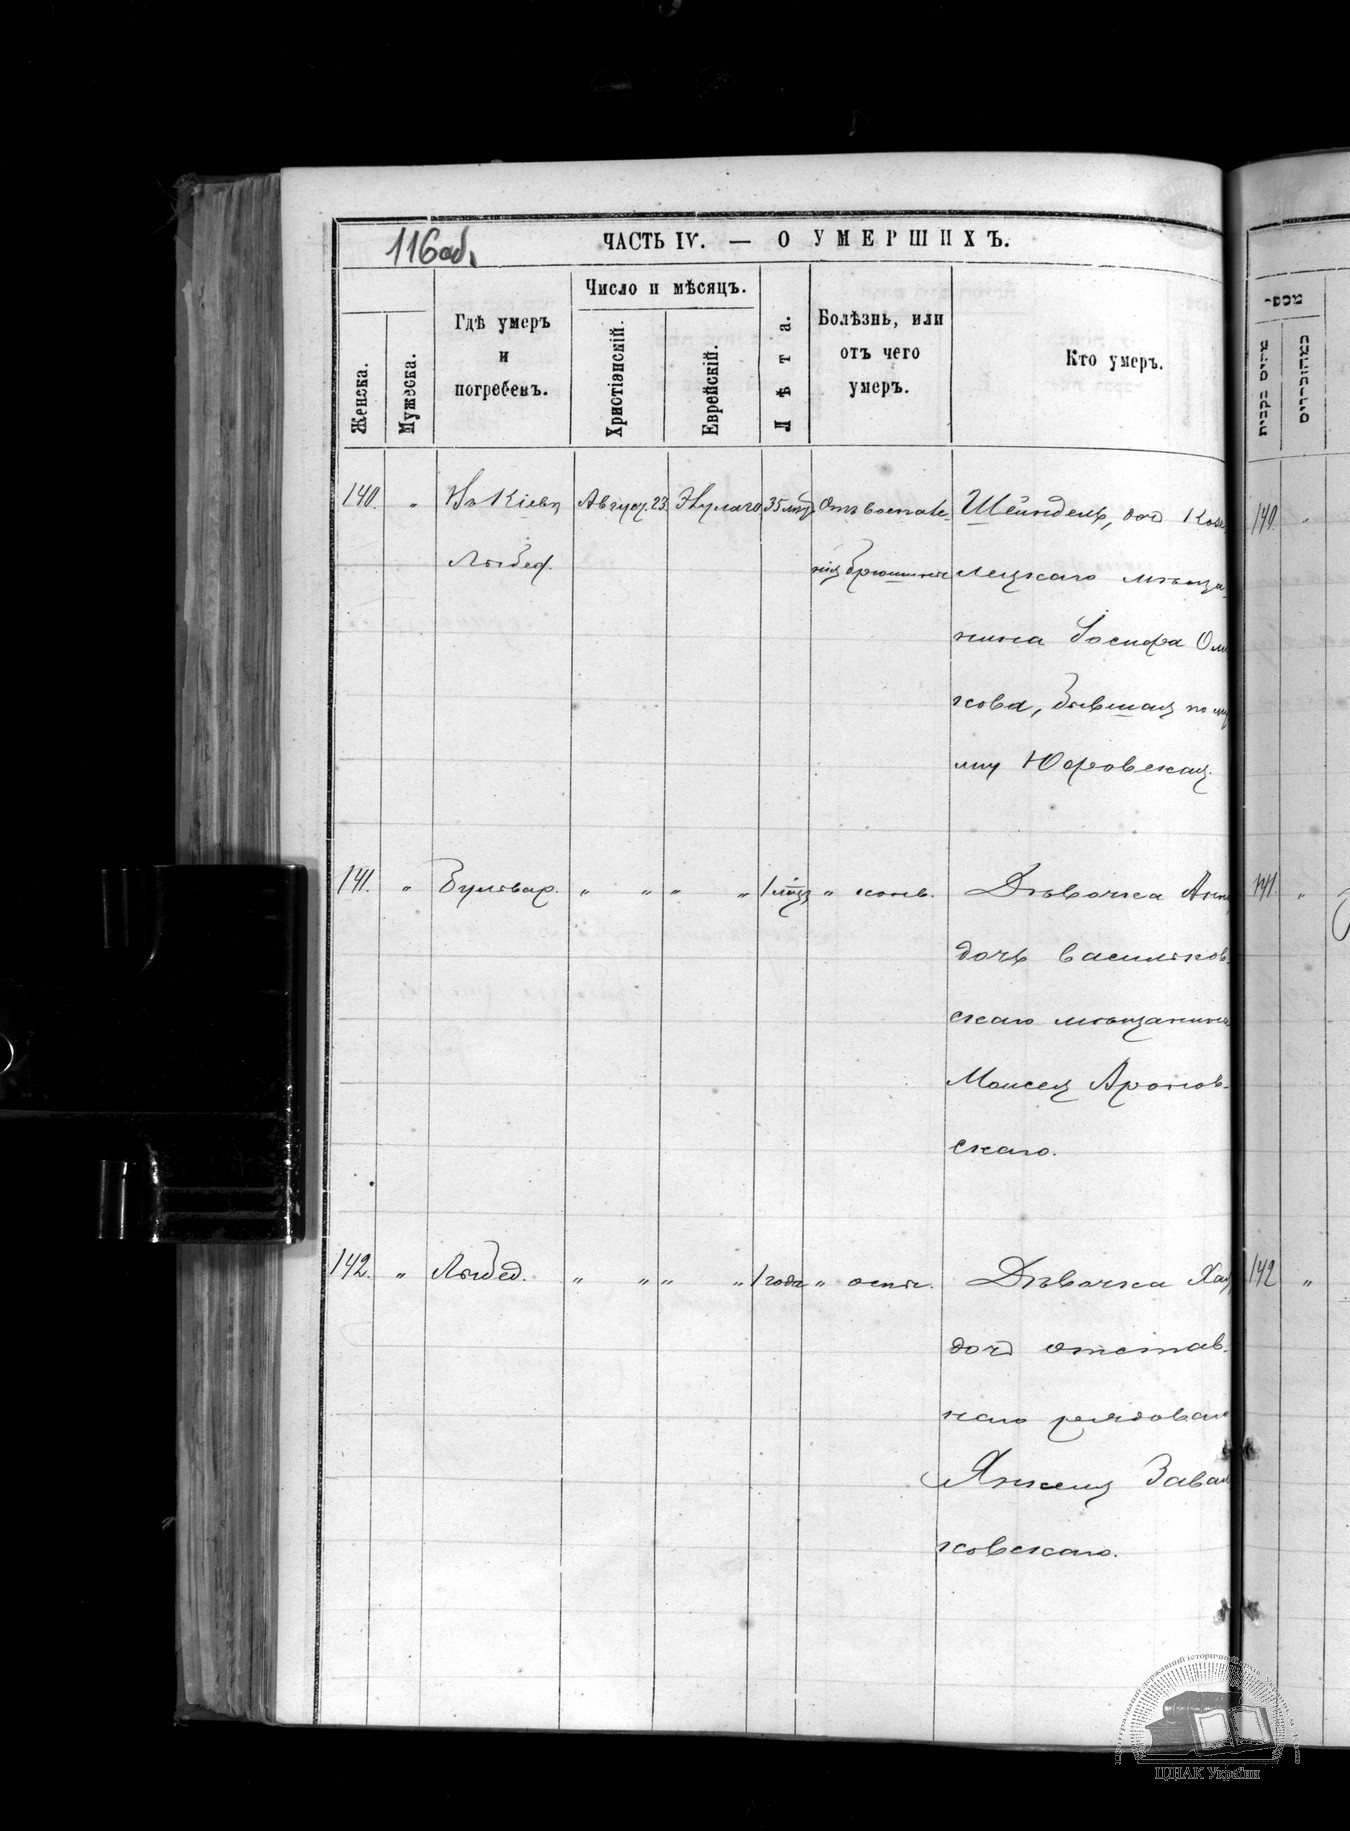 116 об.
ЧАСТЬ IV. — О УМЕРШИХЪ.
Женска.
Мужеска.
Гдѣ умеръ
и
погребенъ.
Число и мѣсяцъ.
Христіанскій.
Еврейскій.
Лѣта.
Болѣзнь, или
отъ чего
умеръ.
Кто умеръ.
140. " Въ Кіевѣ Август. 23. 35 лѣт Отъ воспале- Шейндель, доч
Лыбед. нія брюшины лецкаго мѣща-
нина Іосифа
кова, бывшая по му
жу Юровская.
141. " Бульвар. " " " " 1 " Дѣвочка
дочь васильков-
скаго мѣщанина
Моисея Аронов-
скаго.
142. " Лыбед. " " " " 1 года " Дѣвочка
доч отстав-
наго рядоваго
Янкеля
ковскаго.
מספר
140 "
141 "
142 "
ЦДІАК України